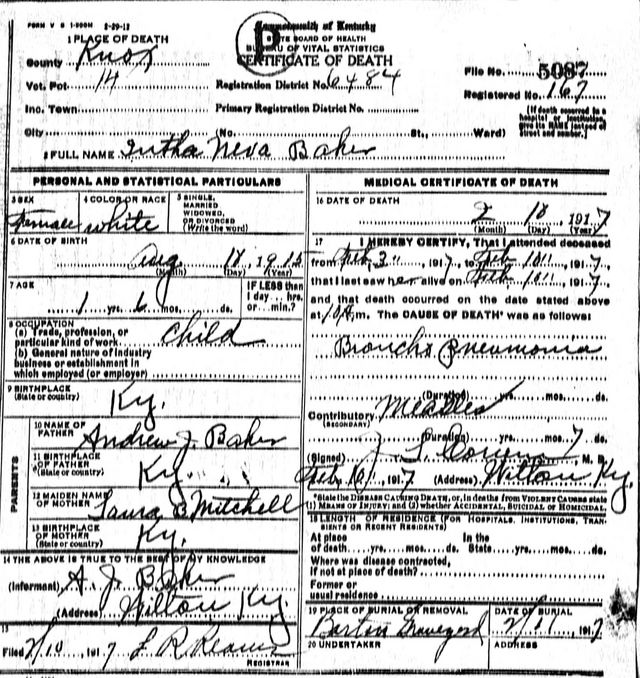 FORM V S 1-500M 2-29-12
Commonwealth of Kentucky
STATE BOARD OF HEALTH
BUREAU OF VITAL STATISTICS
CERTIFICATE OF DEATH
P
1 PLACE OF DEATH
County Knox
Vot. Pct 14
Inc. Town
City (No. St., Ward)
Registration District No. 6484
Primary Registration District No.
File No. 5087
Registered No. 167
(If death occurred in a hospital or institution, give its NAME instead of street and number.)
2 FULL NAME Neva Baker
PERSONAL AND STATISTICAL PARTICULARS
3 SEX Female
4 COLOR OR RACE white
5 SINGLE, MARRIED, WIDOWED, OR DIVORCED (Write the word)
6 DATE OF BIRTH
Aug 18, 1915
(Month) (Day) (Year)
7 AGE
1 yrs. 6 mos. ds.
IF LESS than 1 day... hrs. or... min.?
8 OCCUPATION
(a) Trade, profession, or particular kind of work child
(b) General nature of industry business or establishment in which employed (or employer)
9 BIRTHPLACE (State or country) Ky.
PARENTS
10 NAME OF FATHER Andrew J. Baker
11 BIRTHPLACE OF FATHER (State or country) Ky.
12 MAIDEN NAME OF MOTHER Laura B Mitchell
13 BIRTHPLACE OF MOTHER (State or country) Ky.
14 THE ABOVE IS TRUE TO THE BEST OF MY KNOWLEDGE
(Informant) A. J. Baker
(Address) Wilton Ky.
15
Filed 2/10, 1917 L R
REGISTRAR
MEDICAL CERTIFICATE OF DEATH
16 DATE OF DEATH
2 10, 1917
(Month) (Day) (Year)
17 I HEREBY CERTIFY, That I attended deceased
from Feb 3", 1917, to Feb 10", 1917,
that I last saw her alive on Feb 10", 1917,
and that death occurred on the date stated above
at 10 A.m. The CAUSE OF DEATH* was as follows:
Broncho pneumonia
(Duration) yrs. mos. ds.
Contributory Measles
(SECONDARY)
(Duration) yrs. mos. 7 ds.
(Signed) M. D.
Feb 10, 1917 (Address) Wilton Ky.
*State the DISEASE CAUSING DEATH, or, in deaths from VIOLENT CAUSES state
(1) MEANS OF INJURY; and (2) whether ACCIDENTAL, SUICIDAL OR HOMICIDAL
18 LENGTH OF RESIDENCE (FOR HOSPITALS, INSTITUTIONS, TRANSIENTS OR RECENT RESIDENTS)
At place of death yrs. mos. ds. In the State yrs. mos. ds.
Where was disease contracted, if not at place of death?
Former or usual residence
19 PLACE OF BURIAL OR REMOVAL
Barton Graveyard
DATE OF BURIAL
2/11, 1917
20 UNDERTAKER
ADDRESS